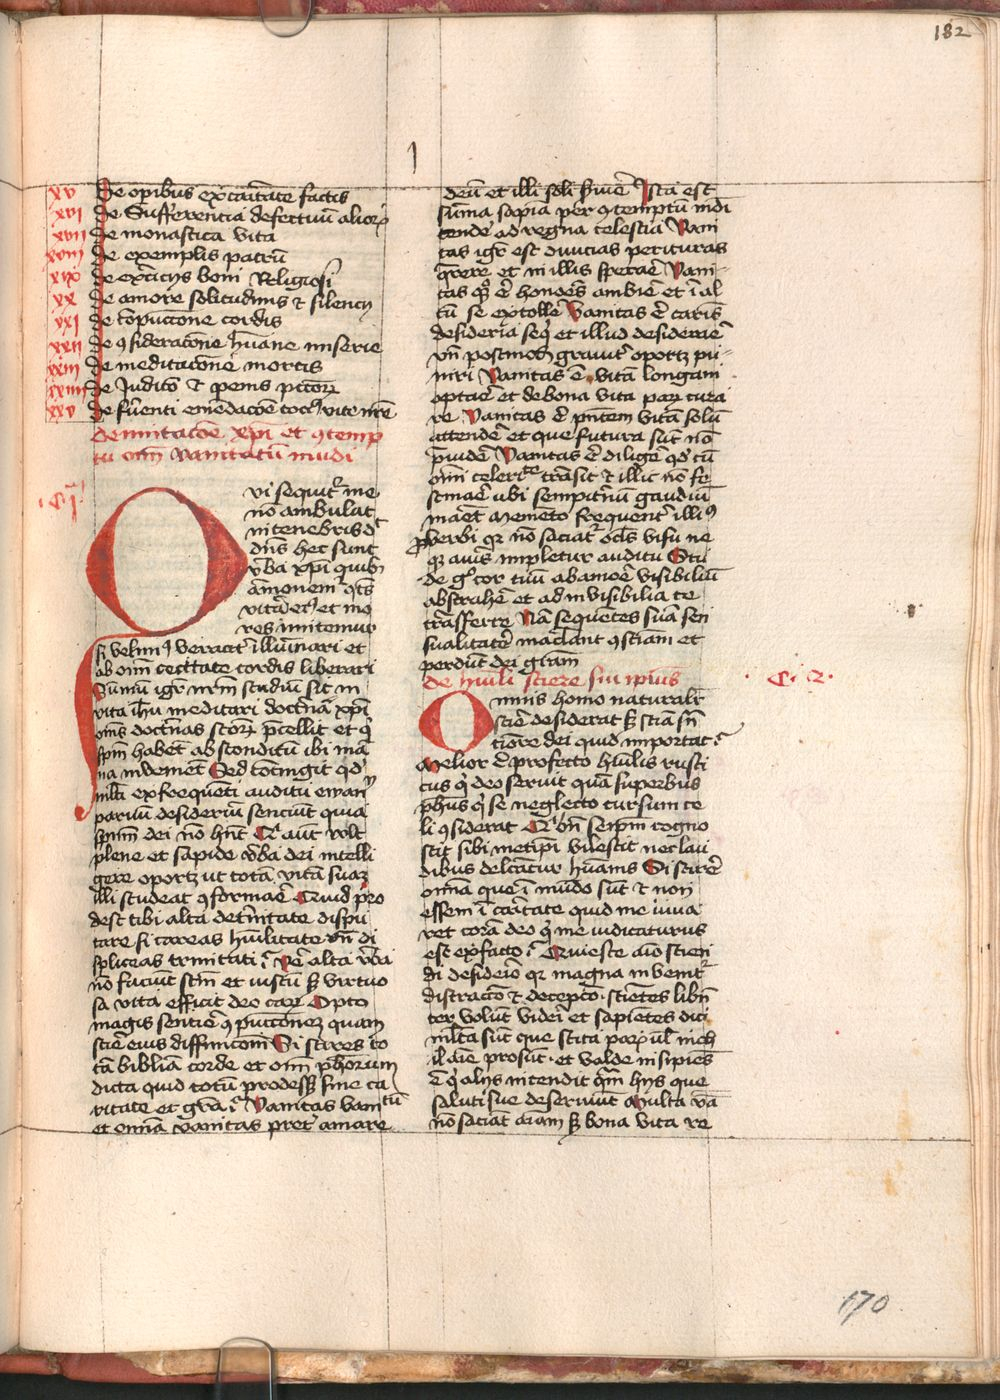 182
1
xv De opibus ex caritate factis
xvi de Sufferencia defectuū alioꝝ
xvii de monastica vita
xviii de exemplis patrū
xix de exercicijs boni Religiosi
xx de amore solitudinis et silencij
xxi de cōpūccione cordis
xxii de ꝯsideracōne hūane miserie
xxiii de meditacōne mortis
xxiiii de Judicō et penis pctōꝝ
xxv de fuēnti emēdacōe tociꝰ vite nrē
de imitacōe xpi et ꝯtemp
tu oīm vanitatū mūdi
.Cᵐ.j.
Qvi sequitʳ me
nō ambulat
in tenebris dt
dn̄s hec sunt
vba xpi quibꝫ
āmonemʳ qtꝰ
vitā eiꝰ et mo
res imitemur
si velimꝰ veracitʳ illūinari et
ab oīm cecitate cordis liberari
Sūmū igʳ nr̄m studiū sit in
vita ih̄u meditari doctnā xpi
om̄s doctnas sctōꝝ p̄cellit et qͥ
spm̄ habet absconditū ibi mā
na inveniet Sed cōtingit qꝺ
ml̄ti ex frequēti auditu ewan
parvū desideriū senciūt quia
spm̄ dei nō hn̄t Qͥ aūt vlt
plene et sapide vba dei intelli
gere oportꝫ ut totā vitā suaꝫ
illi studeat ꝯformare Quid pro
dest tibi alta de trinitate dispu
tare si careas hūilitate vn̄ di
spliceas trinitati? Vere alta vba
nō faciūt sctm̄ et iustū sꝫ virtuo
sa vita efficit deo caꝝ Opto
magis sentire ꝯpūccionez quam
scire eius diffinicionē Si scires to
tā bibliā corde et om̄ ph̄orum
dicta quid totū prodesset sine ca
ritate et grā? Vanitas vanitatū
et om̄a vanitas pret amare
deū et illi soli s̄uire Ista est
sūma sapīa per ꝯtemptū mūdi
tende ad regna celestia Vani
tas igʳ est diuicias perituras
q̄rere et in illis sperare Vani-
tas qꝫ ē honores ambire et ī al
tū se extollere Vanitas ē carīs
desideria sequi et illud desiderare
vn̄ postmodū grauitʳ oportꝫ pu-
niri Vanitas ē vitā longam
optare et de bona vita paꝝ cura
re Vanitas ē pn̄tem vitā solū
attendere et que futura sūt nō
p̄uidere Vanitas ē diligere qꝺ cū
om̄i celeritate trāsit et illic nō fe
stinare ubi sempitnū gaudiū
manet Memēto frequenter illiꝰ
ꝓverbi qꝛ nō saciatʳ ocl̄s visu ne
qꝫ auris impletur auditu Stu
de gͦ cor tuū ab amore visibiliū
abstrahere et ad invisibilia te
trāsferre Nā sequētes suā sen
sualitatē maclant ꝯsciam et
perdūt dei grām
de hūili scire sui ipius .C. 2.
Omnis homo naturalitʳ
scire desiderat sꝫ scia sn̄
timore dei quid importat?
Melior ē profecto hūilis rusti
cus qͥ deo seruit quā superbus
ph̄us qͥ se neglecto cursum ce
li ꝯsiderat Qͥ bn̄ seipm cogno
scit sibi metipi vilescit nec lau
dibus delcātur hūanis Si scirē
om̄ia que ī mūdo sūt et non
essem ī caritate quid me iuva
ret corā deo qͥ me iudicaturus
est ex facto? Quiesce a nīo scien
di desiderio qꝛ magna in venitʳ
distracio et decepcō. scientes libn̄
ter volūt videri et sapientes dici
ml̄ta sūt que scita paꝝ vl nich
il aīe prosūt. et valde insipiēs
ē qͥ alijs intendit qm̄ hijs que
saluti sue deseruiūt Multa vba
nō saciāt aīam sꝫ bona vita re
170